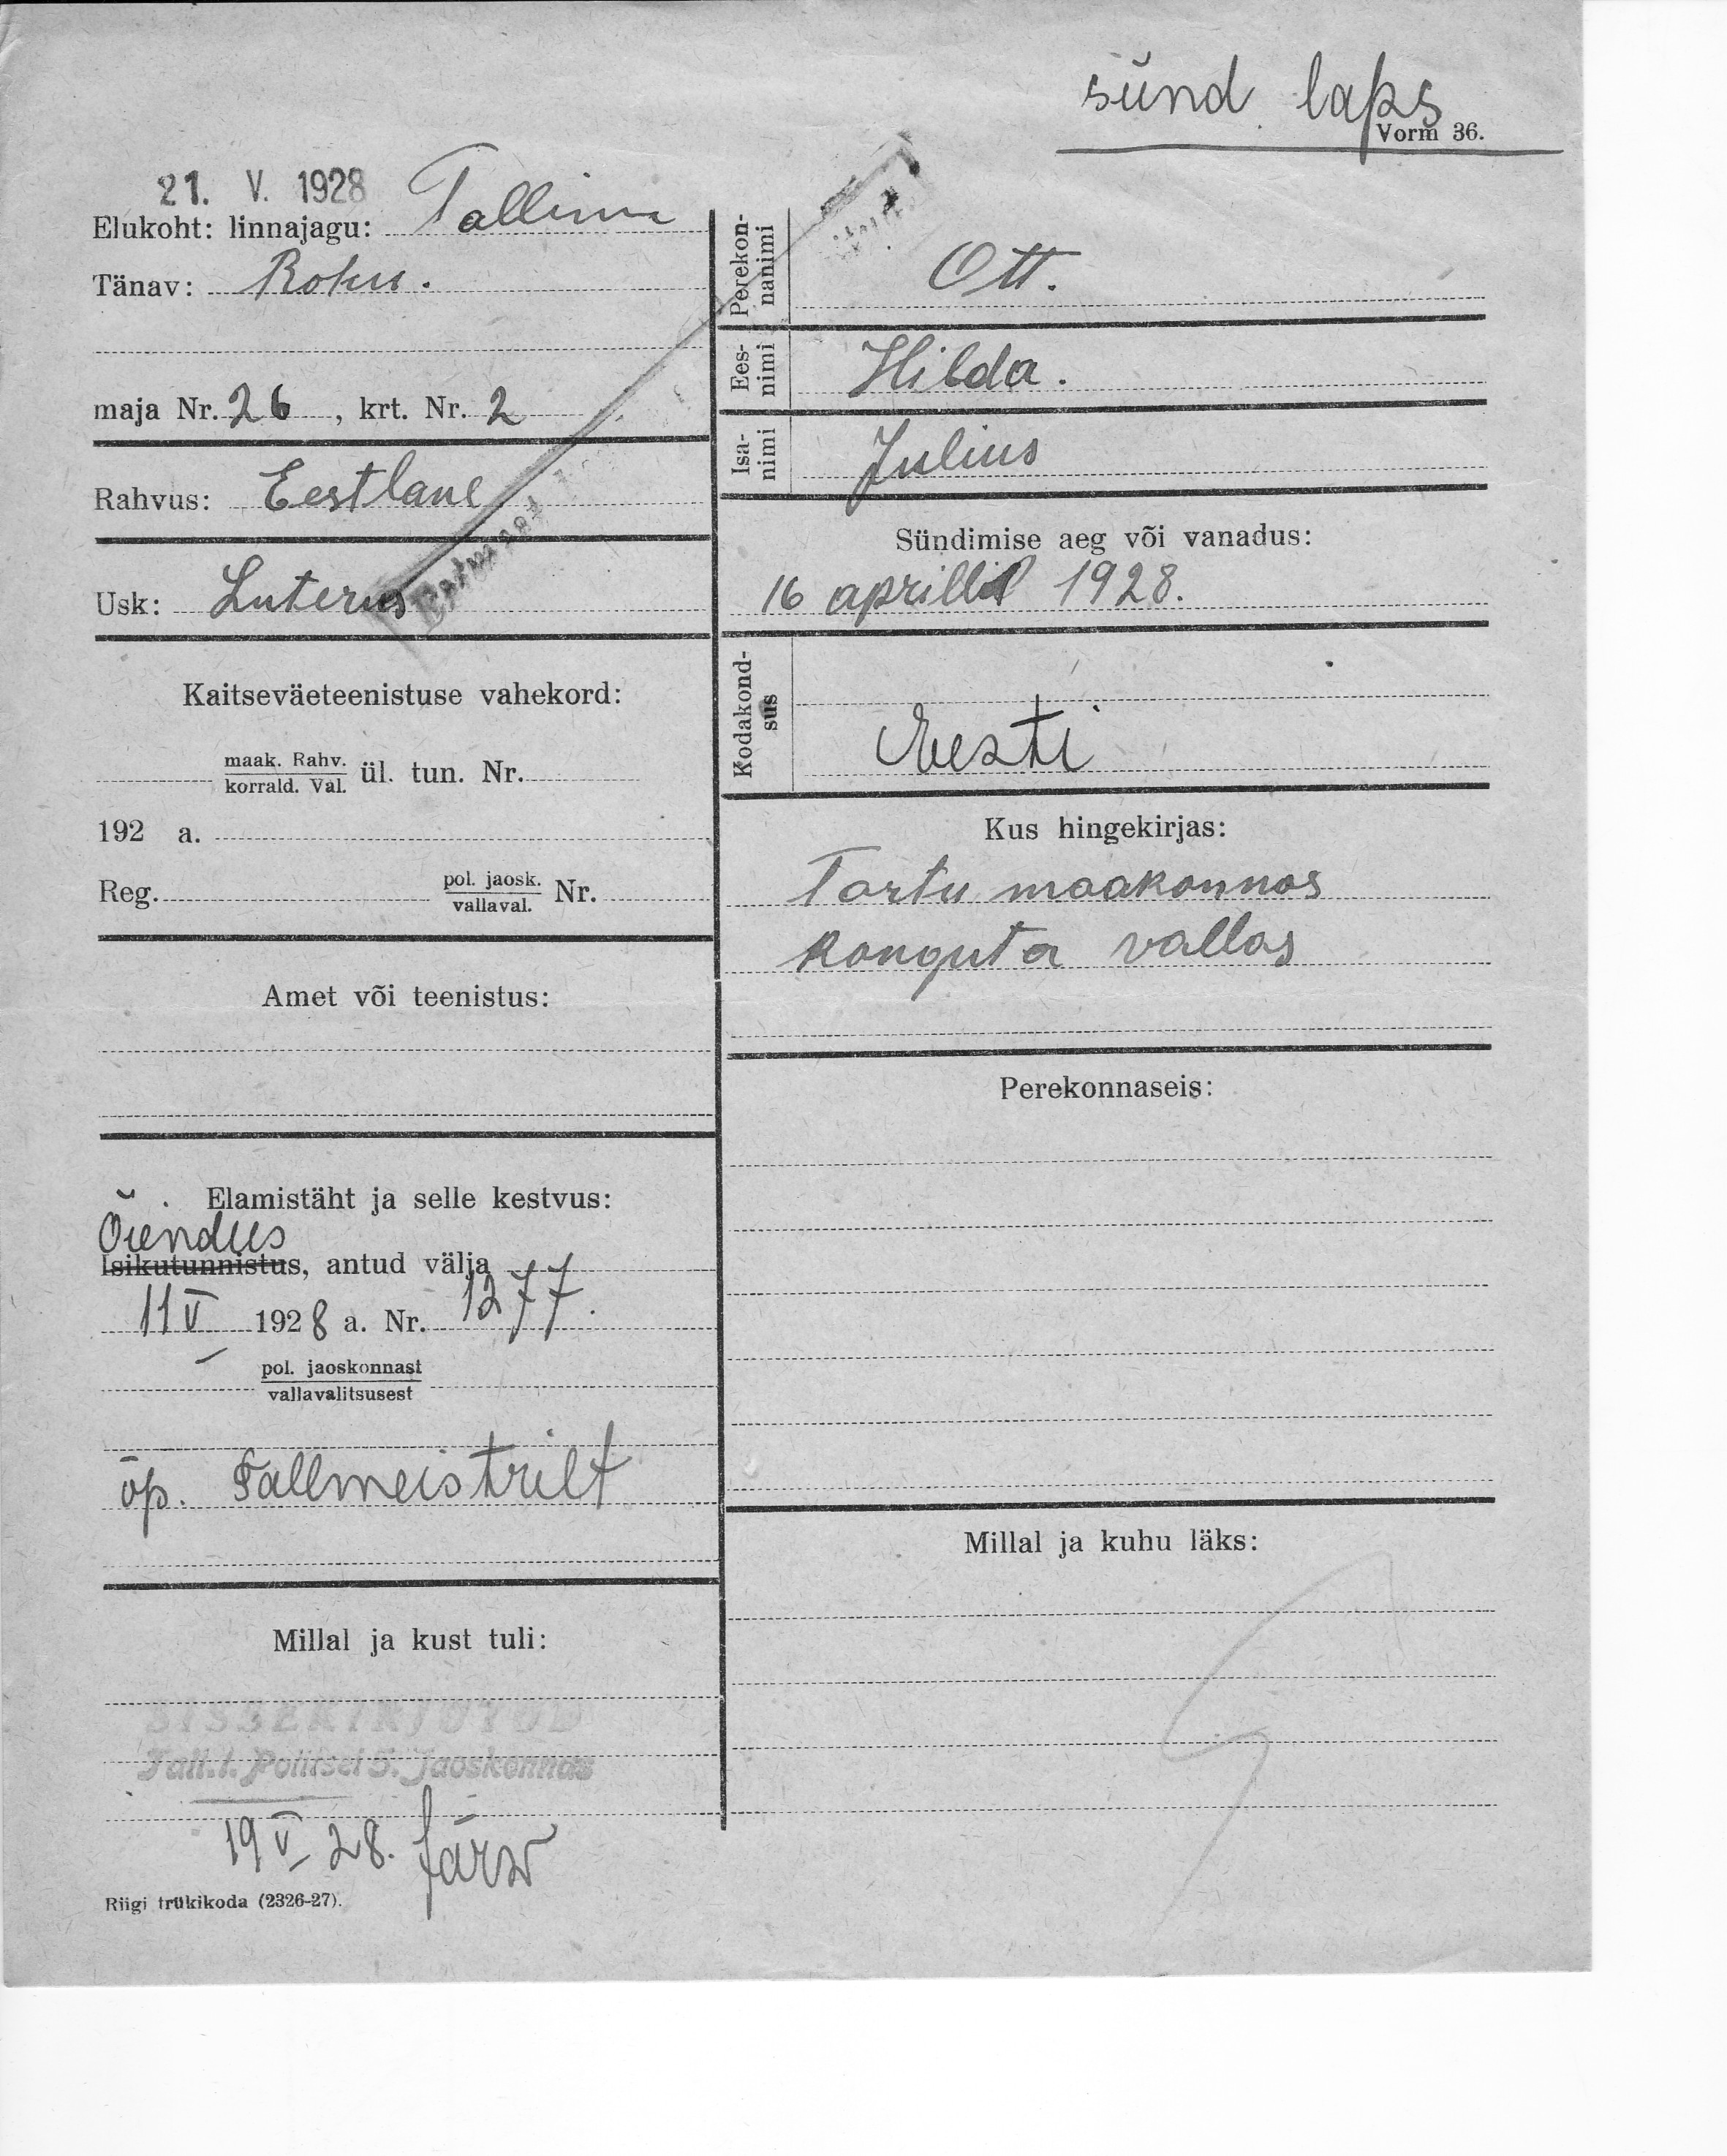 sünd. laps
Vorm 36.
21. V. 1928
Elukoht: linnajagu: Tallinn
Tänav: Rohu.
maja Nr. 26, krt. Nr. 2
Rahvus: Eestlane
Usk: Luterus
Kaitseväeteenistuse vahekord:
maak. Rahv.
korrald. Val. ül. tun. Nr.
192 a.
Reg. pol. jaosk.
vallaval. Nr.
Amet või teenistus:
Elamistäht ja selle kestvus:
Õiendus
Isikutunnistus, antud välja
11 V 1928 a. Nr. 1277.
pol. jaoskonnast
vallavalitsusest
õp. Tallmeistrilt
Millal ja kust tuli:
SISSEKIRJUTUD
Tall.l. Politsei 5. Jaoskonnas
19 V 28.
Riigi trükikoda (2326-27).
Perekon-
nanimi
Ott.
Ees-
nimi
Hilda.
Isa-
nimi
Julius
Sündimise aeg või vanadus:
16 aprillil 1928.
Kodakond-
sus
Eesti
Kus hingekirjas:
Tartu maakonnas
Konguta vallas
Perekonnaseis:
Millal ja kuhu läks: